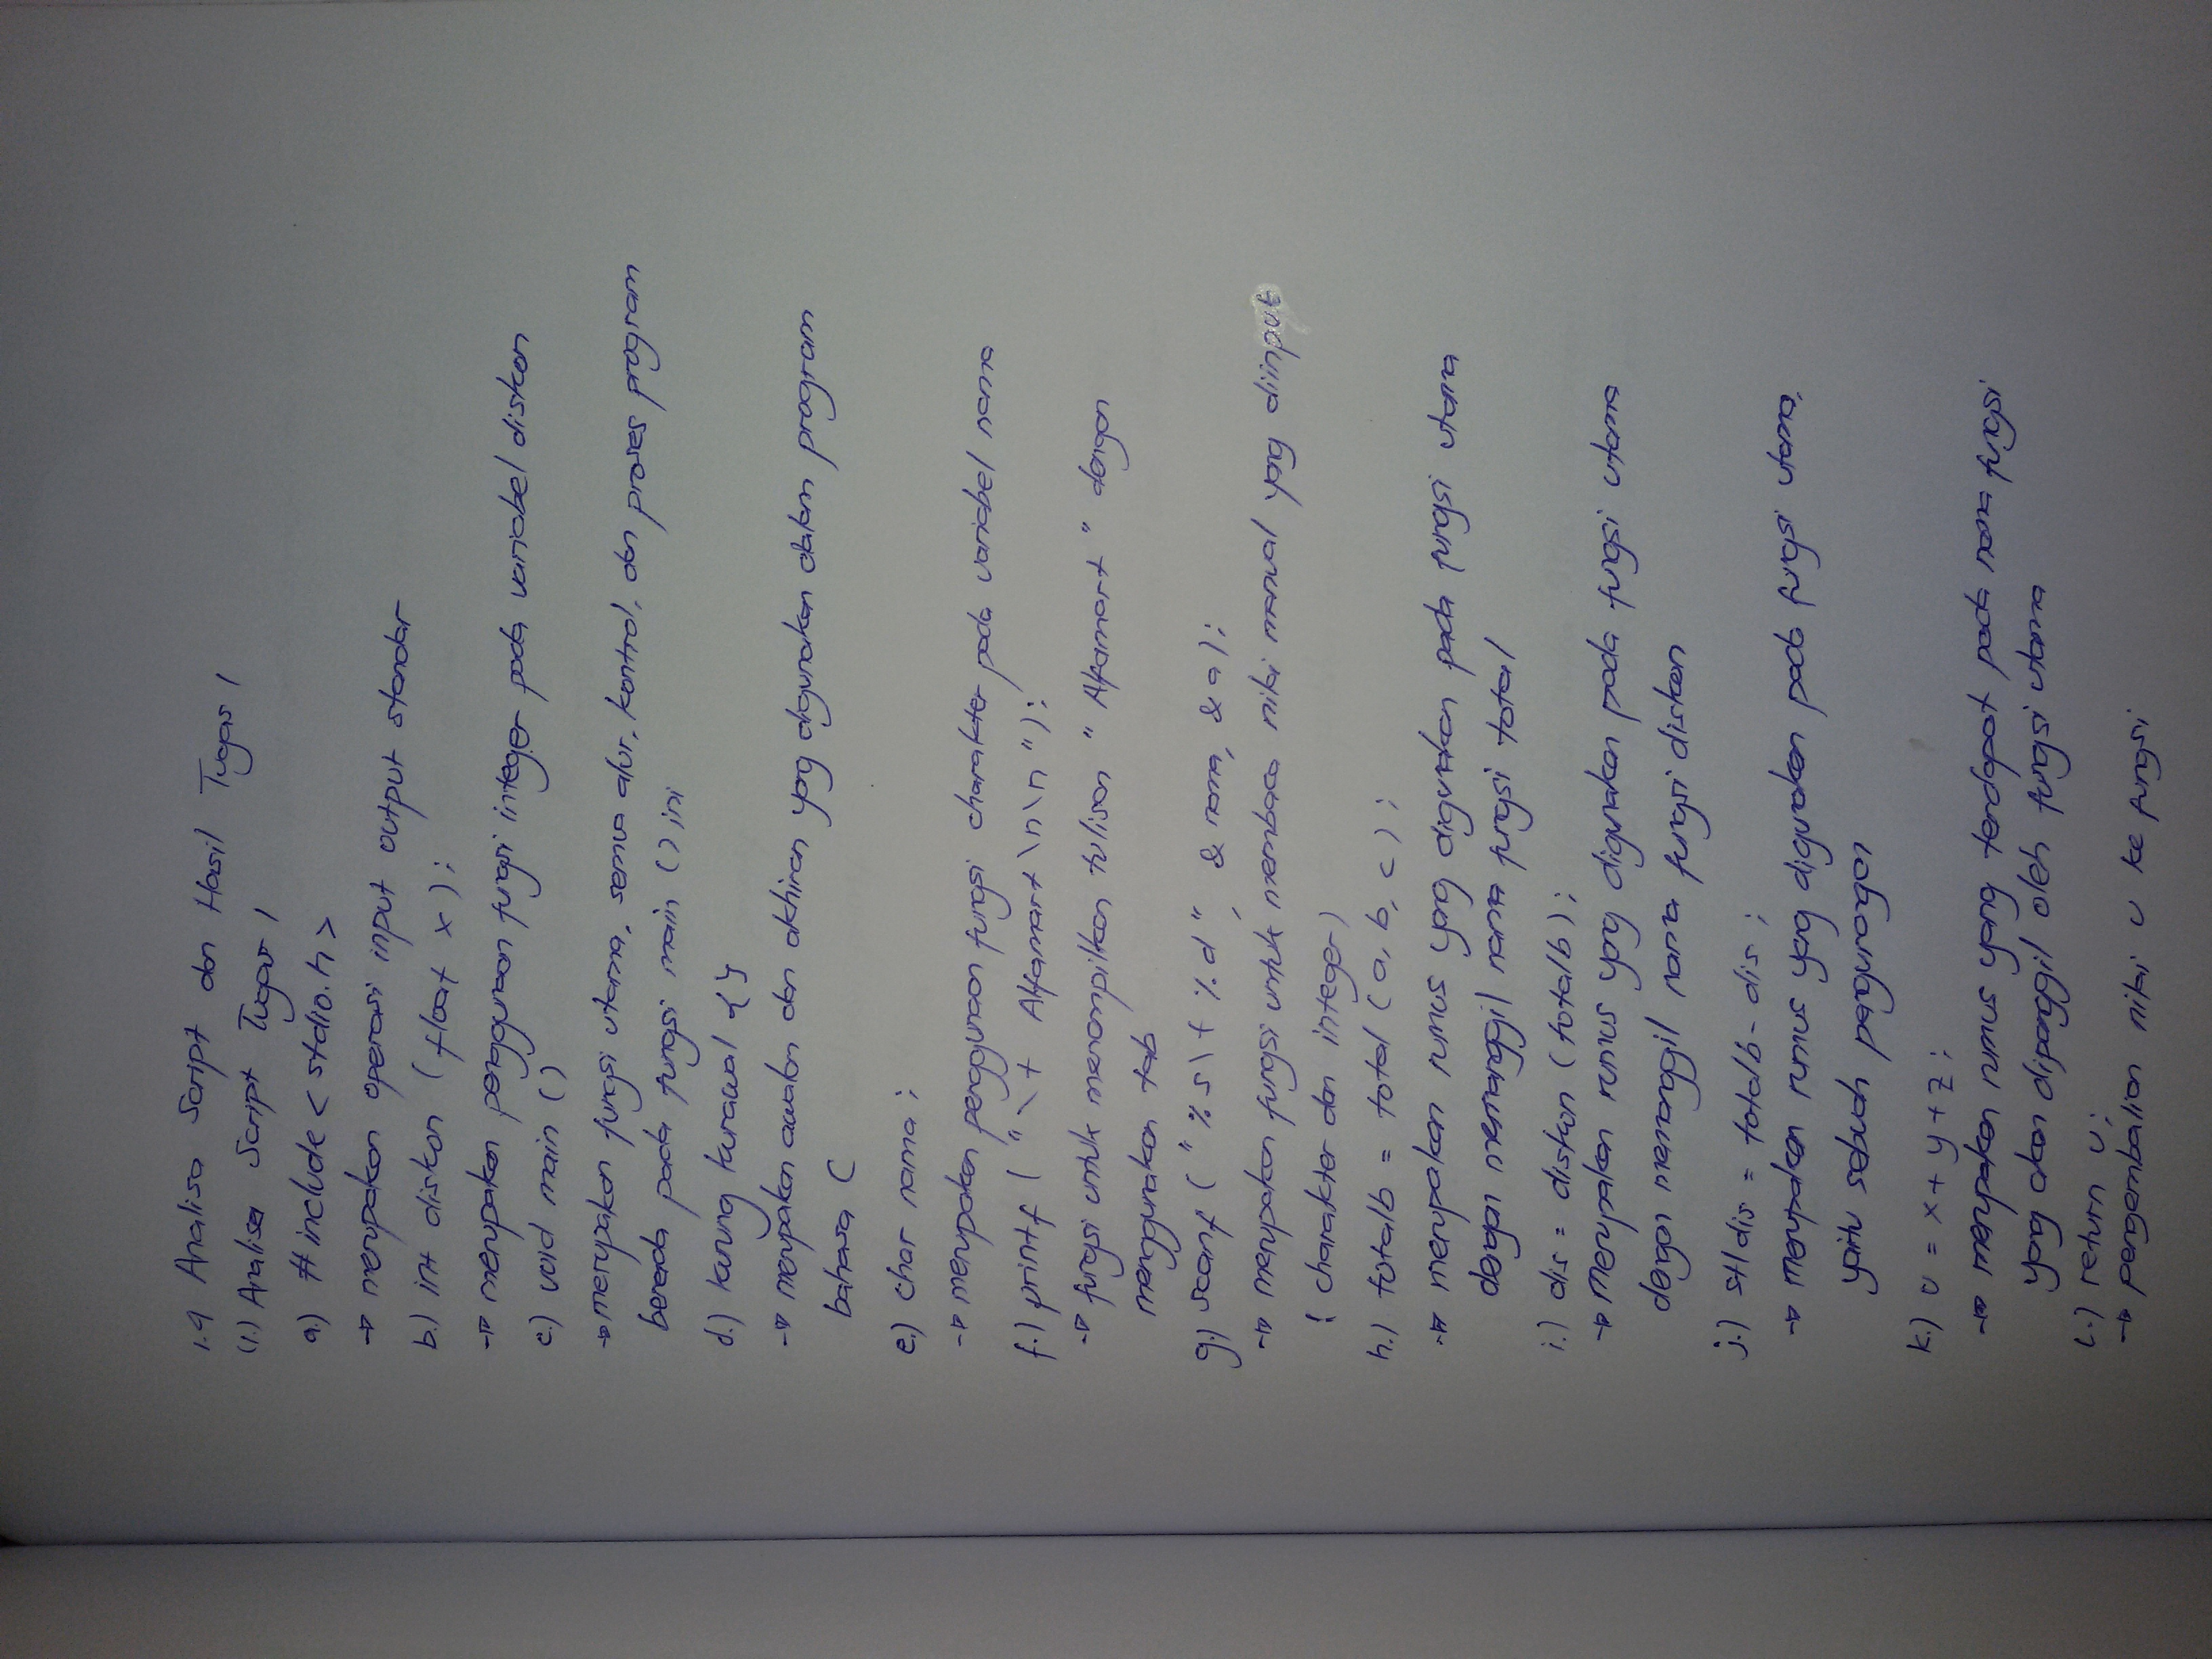 1.4 Analisa Script dan Hasil Tugas 1
(1.) Analisa Script Tugas 1
a.) #include < stdio.h >
→ merupakan operasi input output standar
b.) int diskon ( float x ) ;
→ merupakan penggunaan fungsi integer pada variabel diskon
c.) void main ()
→ merupakan fungsi utama, semua alur, kontrol, dan proses program
berada pada fungsi main () ini
d.) kurung kurawal { }
→ merupakan awalan dan akhiran yang digunakan dalam program
bahasa C
e.) char nama ;
→ merupakan penggunaan fungsi charakter pada variabel nama
f.) printf ( " \t Alfamart \n\n " ) ;
→ fungsi untuk menampilkan tulisan " Alfamart " dengan
menggunakan tab
g.) scanf ( " %s\t %d ", & nama, & a ) ;
→ merupakan fungsi untuk membaca nilai manual yang diinput
( charakter dan integer )
h.) totalb = total ( a, b, c ) ;
→ merupakan rumus yang digunakan pada fungsi utama
dengan memanggil nama fungsi total
i.) dis = diskon ( totalb ) ;
→ merupakan rumus yang digunakan pada fungsi utama
dengan memanggil nama fungsi diskon
j.) stldis = totalb - dis ;
→ merupakan rumus yang digunakan pada fungsi utama,
yaitu sebuah pengurangan
k.) u = x + y + z ;
→ merupakan rumus yang terdapat pada nama fungsi
yang akan dipanggil oleh fungsi utama
l.) return u ;
→ pengembalian nilai u ke fungsi